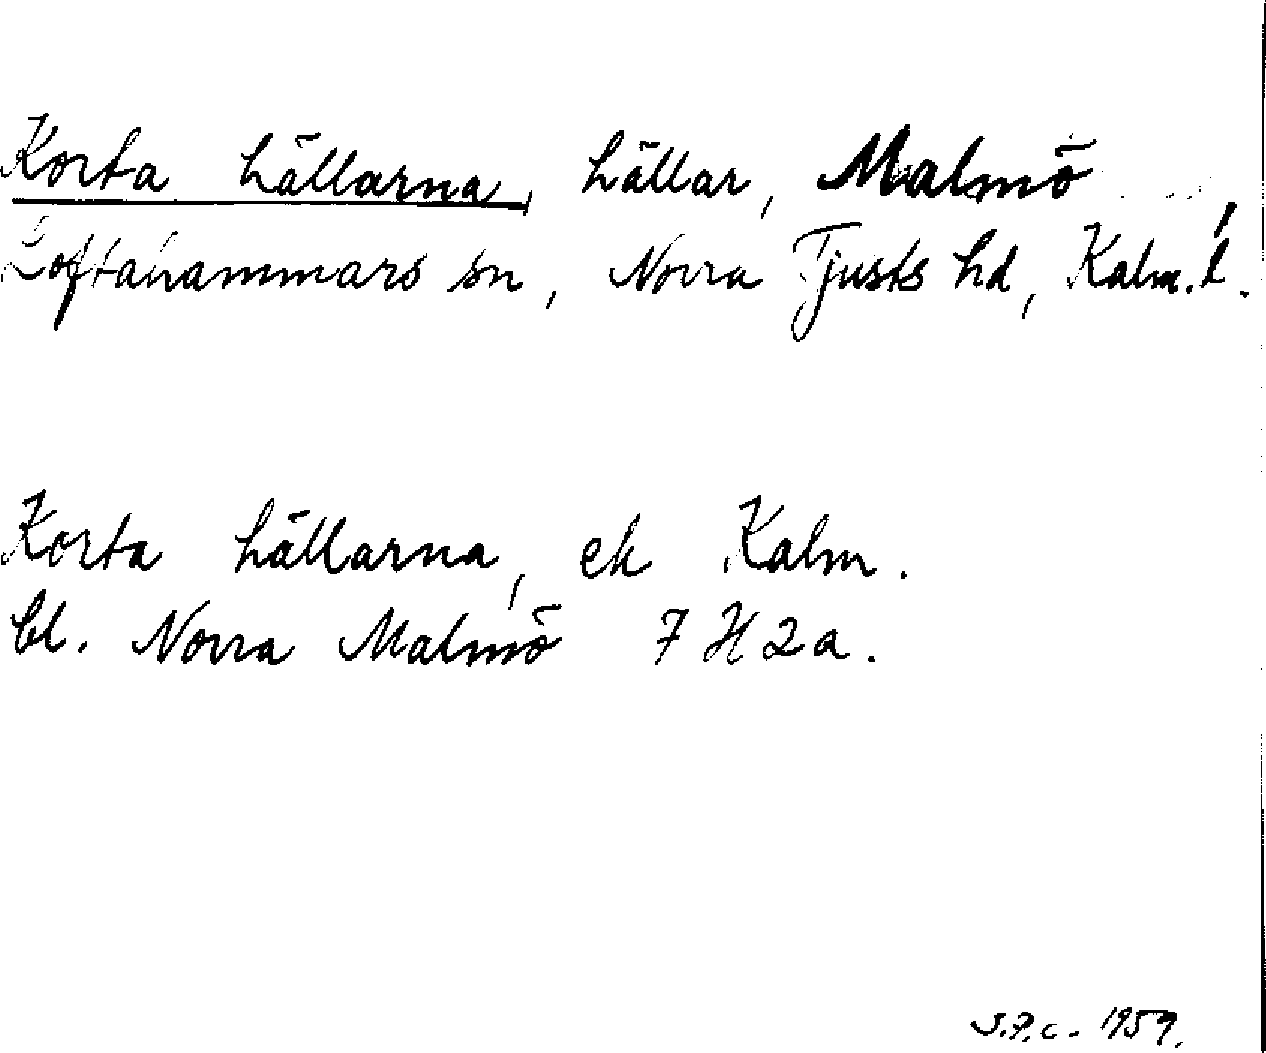 Korta hällarna, hällar, Malmö ,
Loftahammars sn, Norra Tjusts hd, Kalm. l.
Korta hällarna, ek Kalm.
bl. Norra Malmö 7 H 2a.
S.P.c. 1959.